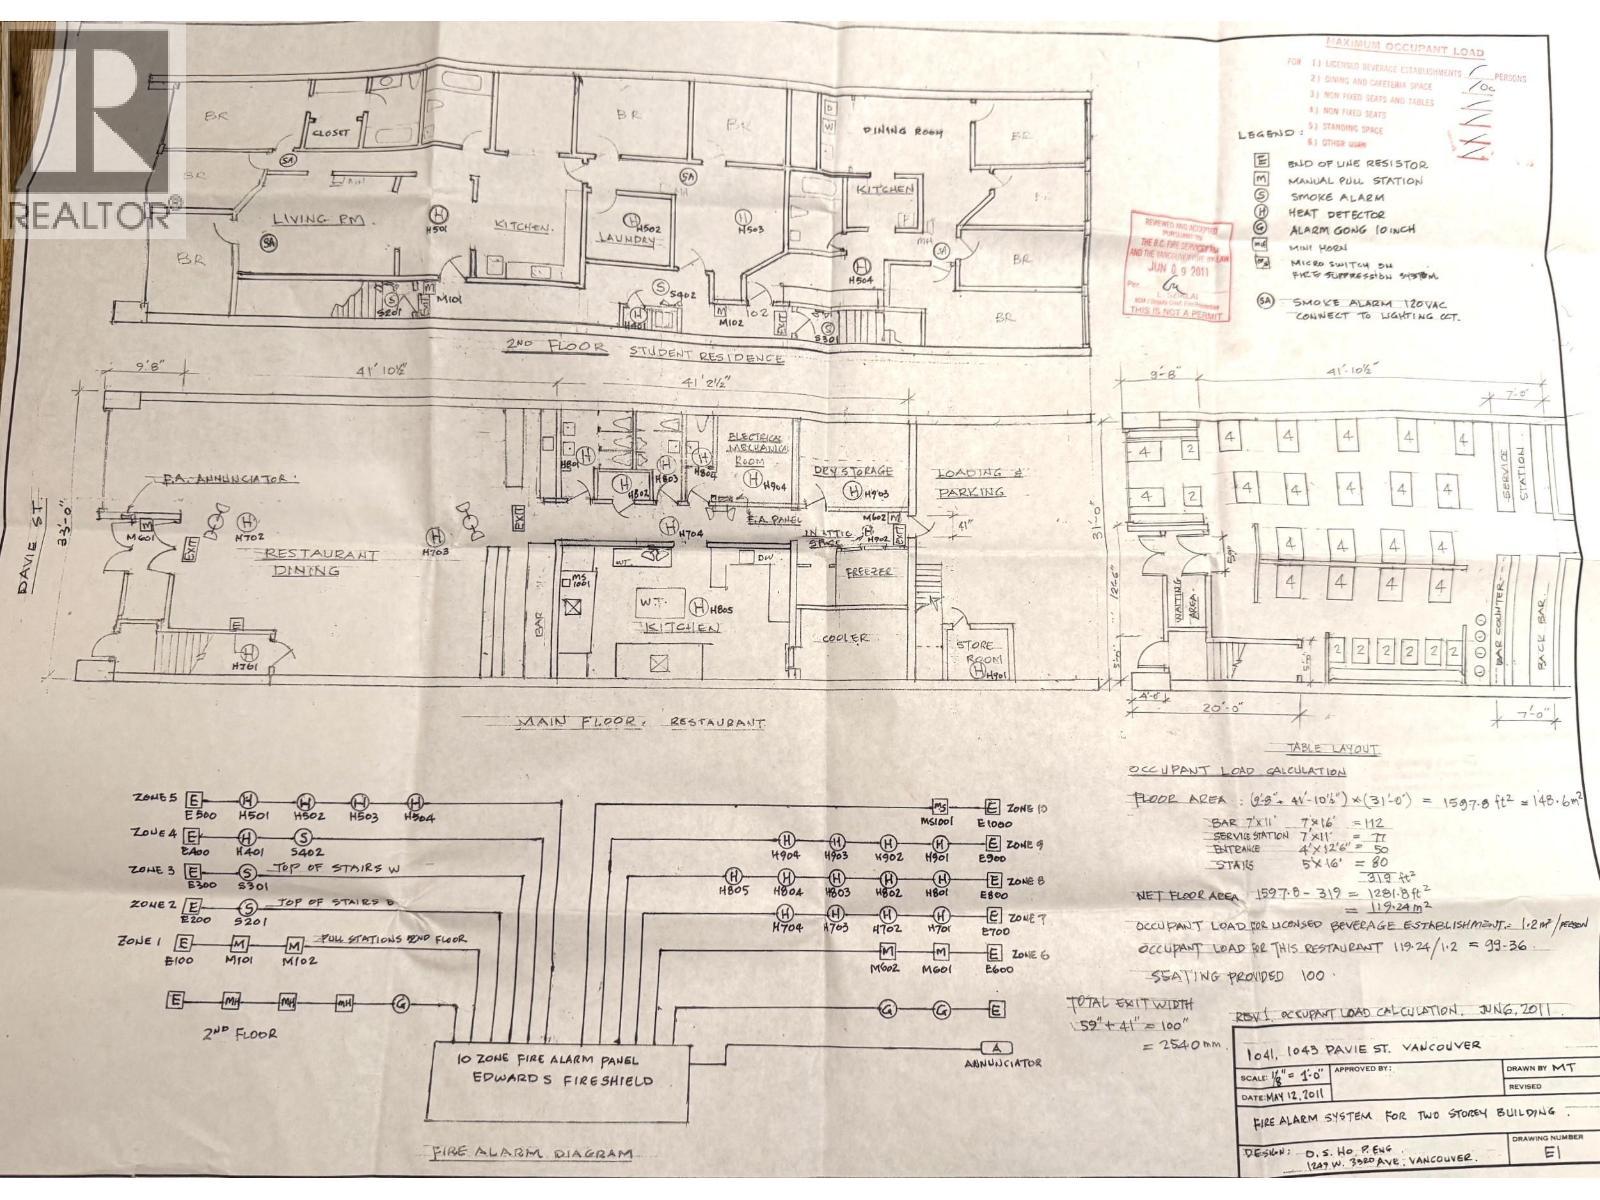 REALTOR®
MAXIMUM OCCUPANT LOAD
FOR 1.) LICENSED BEVERAGE ESTABLISHMENTS PERSONS
2.) DINING AND CAFETERIA SPACE 100
3.) NON FIXED SEATS AND TABLES
4.) NON FIXED SEATS
5.) STANDING SPACE
6.) OTHER USES
LEGEND:
E END OF LINE RESISTOR
M MANUAL PULL STATION
S SMOKE ALARM
H HEAT DETECTOR
G ALARM GONG 10 INCH
MH MINI HORN
MS MICRO SWITCH ON
FIRE SUPPRESSION SYSTEM
SA SMOKE ALARM 120VAC
CONNECT TO LIGHTING CCT.
REVIEWED AND ACCEPTED
PURSUANT TO
THE B.C. FIRE SERVICES ACT
AND THE VANCOUVER FIRE BY-LAW
JUN 09 2011
Per.
THIS IS NOT A PERMIT
BR
CLOSET
BR
BR
DINING ROOM
BR
D
W
SA
SA
BR
KITCHEN
LIVING RM.
H H501
KITCHEN
H H502
LAUNDRY
H H503
MH
SA
SA
BR
BR
H H504
BR
S S201
M M101
S S402
H H401
M M102
102
EXIT
S S301
2ND FLOOR STUDENT RESIDENCE
9'8"
41' 10½"
41' 2½"
DAVIE ST.
33'-0"
F.A. ANNUNCIATOR.
M M601
EXIT
H H702
RESTAURANT
DINING
H H703
EXIT
H H801
H H802
H H803
H H804
ELECTRICAL
MECHANICAL
ROOM
H H904
F.A. PANEL
DRY STORAGE
H H903
LOADING &
PARKING
M602 M
41"
IN ATTIC
SPACE
H H902
EXIT
H H704
FREEZER
MS
1001
W.T.
D.W.
W.T.
H H805
KITCHEN
BAR
COOLER
STORE
ROOM
H H901
E
H H701
MAIN FLOOR. RESTAURANT
9'-8"
41'-10½"
7'-0"
31'-0"
4 2 4 4 4 4 4
4 2 4 4 4 4 4
SERVICE
STATION
59"
4 4 4 4
4 4 4 4
12'6"
WAITING
AREA
2 2 2 2 2 2
BAR COUNTER
BACK BAR
5'-0"
5'-0"
4'-0"
20'-0"
7'-0"
TABLE LAYOUT
OCCUPANT LOAD CALCULATION
FLOOR AREA : (9'-8" + 41'-10½") × (31'-0") = 1597.8 ft² = 148.6 m²
BAR 7'×11' 7'×16' = 112
SERVICE STATION 7'×11' = 77
ENTRANCE 4'×12'6" = 50
STAIRS 5'×16' = 80
319 ft²
NET FLOOR AREA 1597.8 - 319 = 1281.8 ft²
= 119.24 m²
OCCUPANT LOAD FOR LICENSED BEVERAGE ESTABLISHMENT = 1.2 m²/PERSON
OCCUPANT LOAD FOR THIS RESTAURANT 119.24/1.2 = 99.36.
SEATING PROVIDED 100.
TOTAL EXIT WIDTH
59" + 41" = 100"
= 2540 mm.
REV 1. OCCUPANT LOAD CALCULATION. JUN 6, 2011.
ZONE 5 E E500 H H501 H H502 H H503 H H504
ZONE 4 E E400 H H401 S S402
ZONE 3 E E300 S S301 TOP OF STAIRS W
ZONE 2 E E200 S S201 TOP OF STAIRS
ZONE 1 E E100 M M101 M M102 PULL STATIONS 2ND FLOOR
E MH MH MH G
2ND FLOOR
MS MS1001 E E1000 ZONE 10
H H904 H H903 H H902 H H901 E E900 ZONE 9
H H805 H H804 H H803 H H802 H H801 E E800 ZONE 8
H H704 H H703 H H702 H H701 E E700 ZONE 7
M M602 M M601 E E600 ZONE 6
G G E
A
ANNUNCIATOR
10 ZONE FIRE ALARM PANEL
EDWARDS FIRESHIELD
FIRE ALARM DIAGRAM
1041, 1043 DAVIE ST. VANCOUVER
SCALE: 1/8" = 1'-0"
APPROVED BY:
DRAWN BY MT
DATE: MAY 12, 2011
REVISED
FIRE ALARM SYSTEM FOR TWO STOREY BUILDING.
DESIGN: D. S. HO P. ENG.
1249 W. 33RD AVE, VANCOUVER.
DRAWING NUMBER
E1